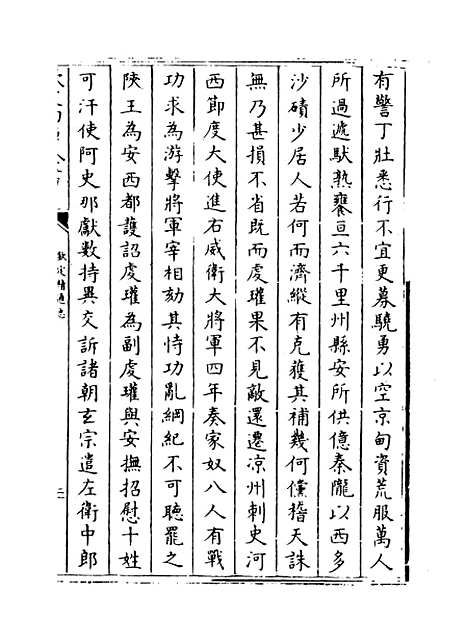 有警丁壯悉行不宜更募驍勇以空京甸資荒服萬人
所過遞馱熟饔亘六千里州縣安所供億秦隴以西多
沙磧少居人若何而濟縱有克獲其補幾何儻稽天誅
無乃甚損不省既而虔瓘果不見敵還遷凉州刺史河
西節度大使進右威衛大將軍四年奏家奴八人有戰
功求為游擊將軍宰相劾其恃功亂綱紀不可聽罷之
陜王為安西都護詔虔瓘為副虔瓘與安撫招慰十姓
可汗使阿史那獻數持異交訴諸朝玄宗遣左衛中郎
欽定續通志
二